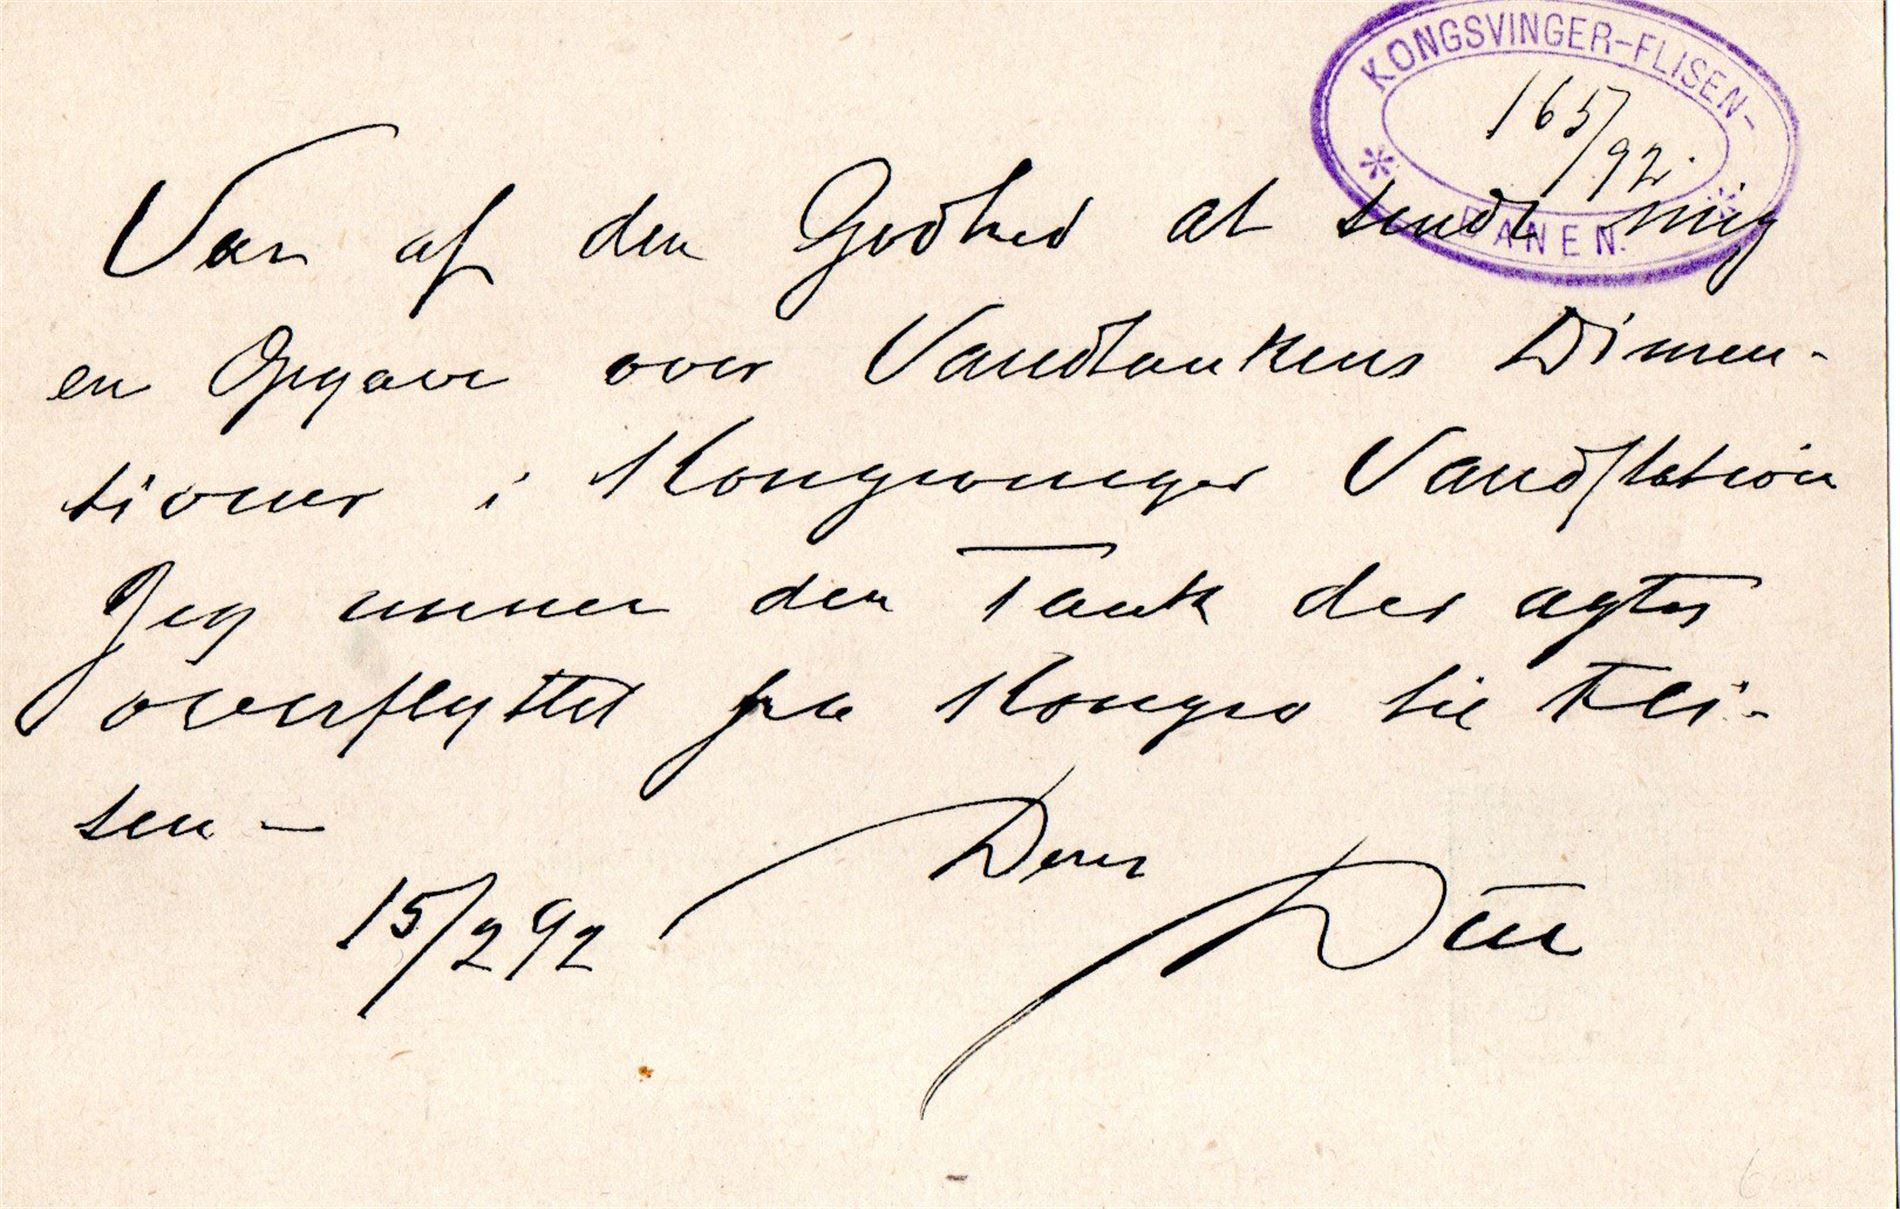 KONGSVINGER-FLISEN-
165/92.
BANEN.
Vær af den Godhed at sende mig
en Opgave over Vandtankens Dimen-
tioner i Kongsvinger Vandstation
Jeg mener den Tank der agtes
overflyttet fra Kongsv til Fli-
sen —
Deres
15/2 92